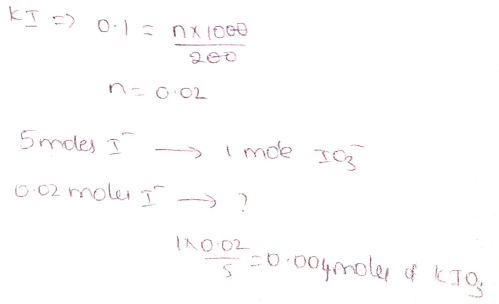 KI => 0.1 = n×1000
200
n = 0.02
5 moles I⁻ → 1 mole IO₃⁻
0.02 moles I⁻ → ?
1×0.02
5
= 0.004 moles of KIO₃